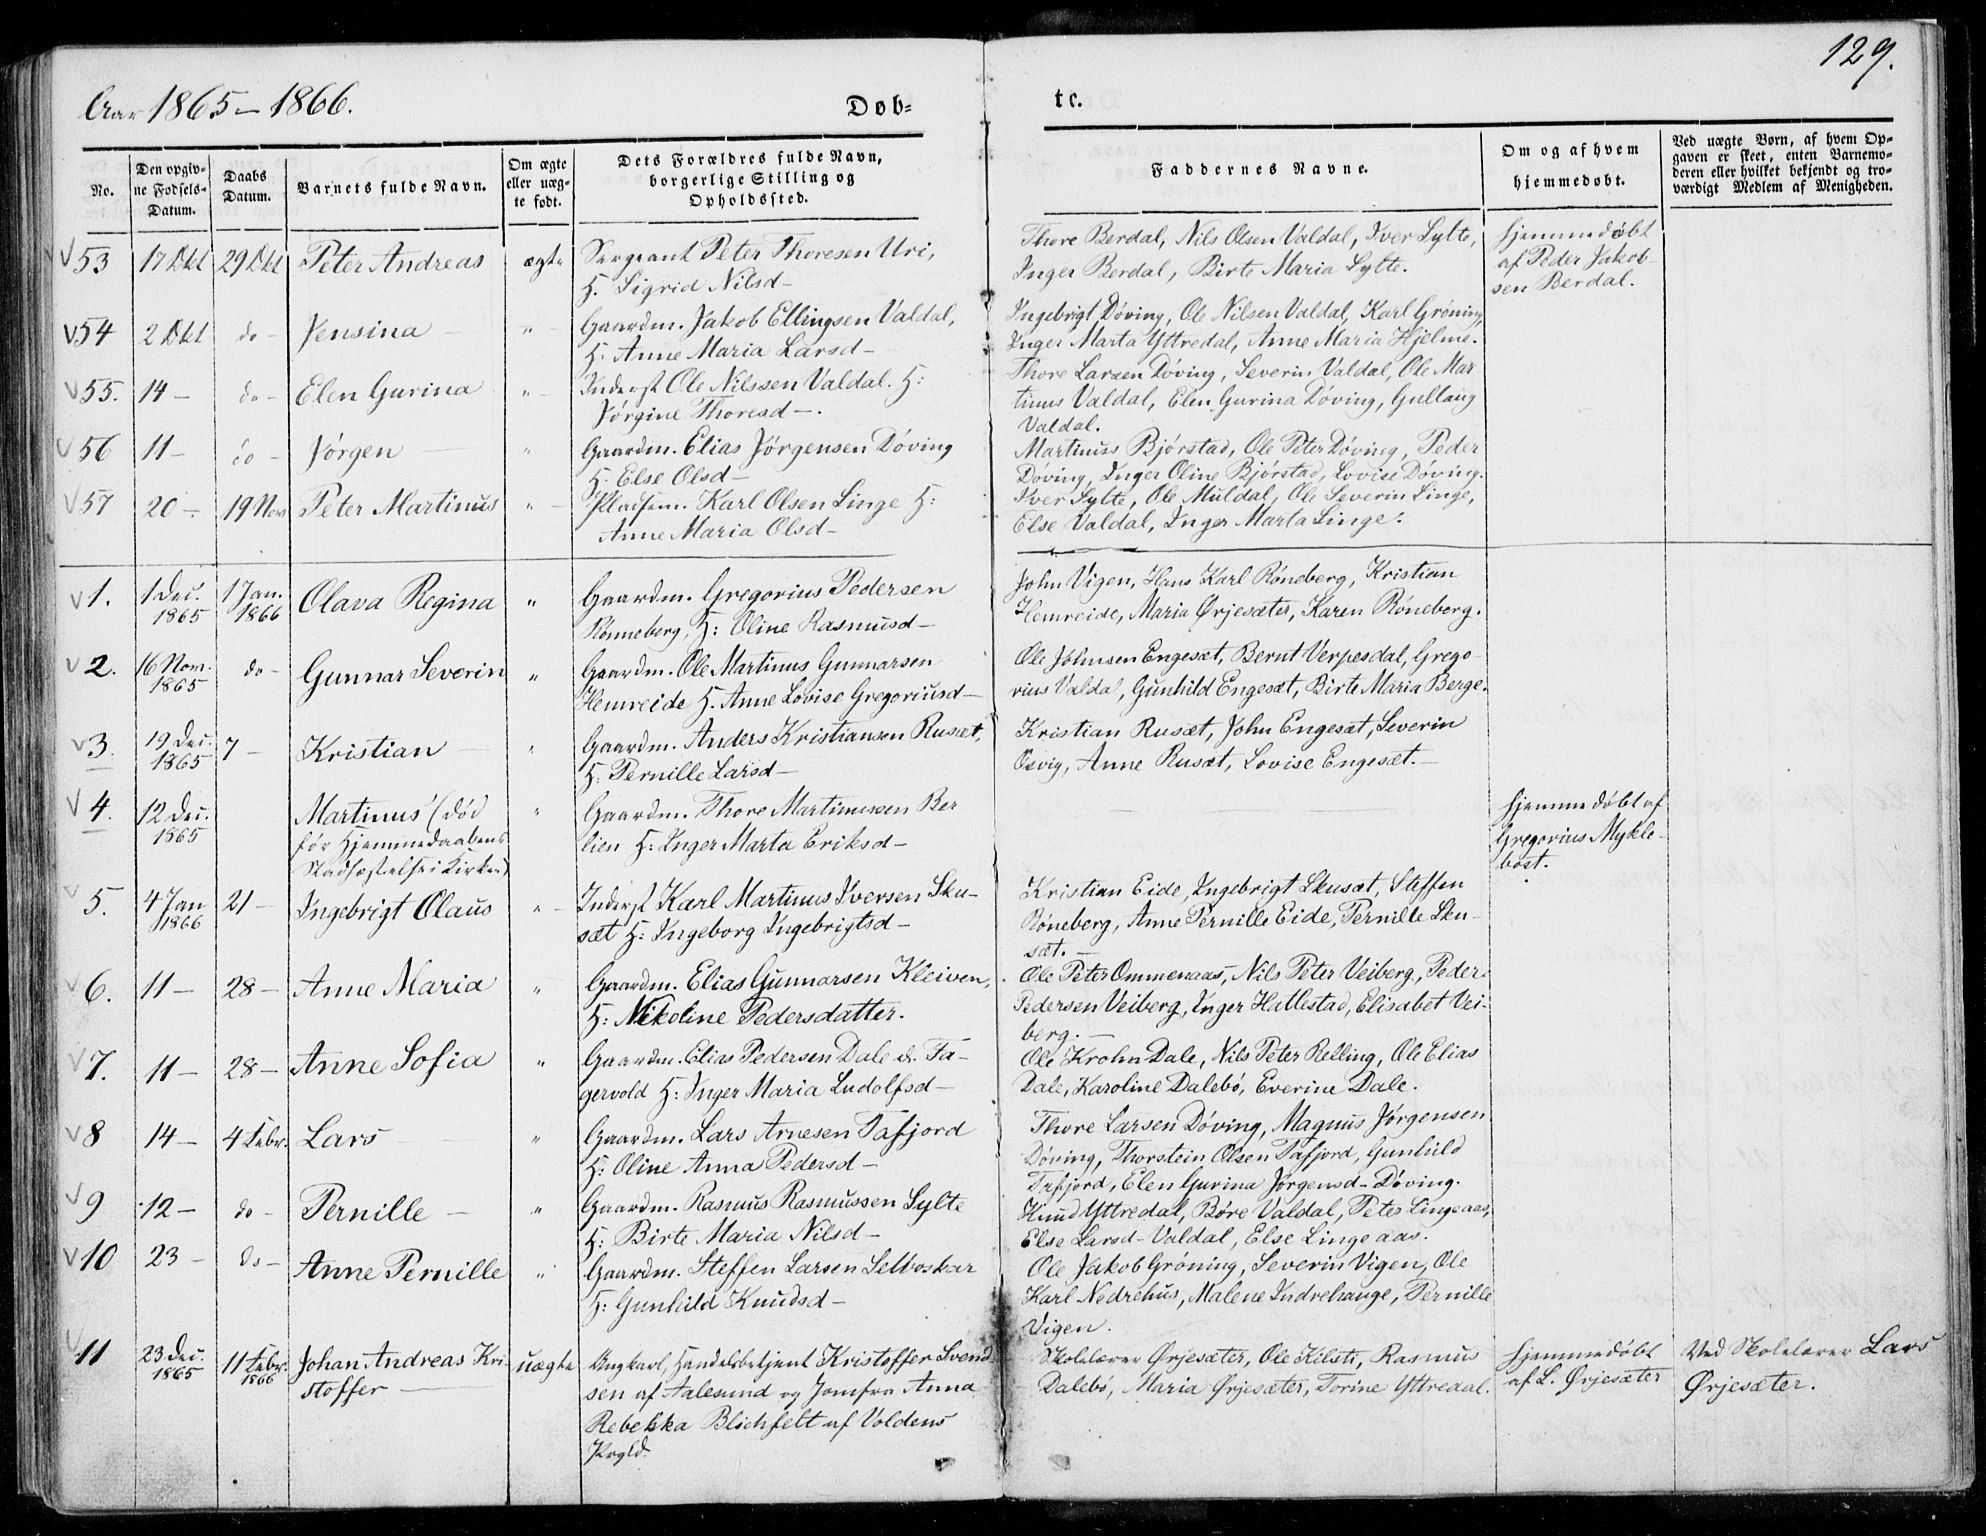 129.
Aar 1865–1866.
Døb=
te.
No.
Den opgiv-
ne Fødsels-
Datum.
Daabs
Datum.
Barnets fulde Navn.
Om ægte
eller uæg-
te født.
Dets Forældres fulde Navn,
borgerlige Stilling og
Opholdssted.
Faddernes Navne.
Om og af hvem
hjemmedøbt.
Ved uægte Børn, af hvem Op-
gaven er skeet, enten Barnemo-
deren eller hvilket bekjendt og tro-
værdigt Medlem af Menigheden.
53 17 Okt 29 Okt Peter Andreas ægte Sergeant Peter Thoresen Uri,
H. Sigrid Nilsd–
Thore Berdal, Nils Olsen Valdal, Iver Sylte,
Inger Berdal, Birte Maria Sylte.
hjemmedøbt
af Peder Jakob-
sen Berdal.
54 2 Okt do – Jensina – " – Gaardm. Jakob Ellingsen Valdal,
H. Anne Maria Larsd–
Ingebrigt Døving, Ole Nilsen Valdal, Karl Grøning,
Inger Marta Yttredal, Anne Maria Hjelme.
55. 14 – do – Elen Gurina " – Inderst Ole Nilssen Valdal. H:
Jørgine Thoresd–.
Thore Larsen Døving, Severin Valdal, Ole Mar
tinus Valdal, Elen Gurina Døving, Gullaug
Valdal.
56 11 – do – Jørgen – " Gaardm. Elias Jørgensen Døving
H. Else Olsd–
Martinus Bjørstad, Ole Peter Døving, Peder
Døving, Inger Oline Bjørstad, Lovise Døving.
57 20 –. 19 Nov Peter Martinus " – Pladsm. Karl Olsen Linge H:
Anne Maria Olsd–
Iver Sylte, Ole Muldal, Ole Severin Linge,
Else Valdal, Inger Marta Linge.
1. 1 Dec. 1 Jan. Olava Regina " Gaardm. Gregorius Pedersen
1865 1866
Rønneberg, H: Oline Rasmusd–
John Vigen, Hans Karl Røneberg, Kristian
Hemreide, Maria Ørjesæter, Karen Røneberg.
2. 16 Nom. do – Gunnar Severin " Gaardm. Ole Martinus Gunnarsen
1865
Hemreide H. Anne Lovise Gregoriusd–
Ole Johnsen Engesæt, Bernt Verpesdal, Grego-
rius Valdal, Gunhild Engesæt, Birte Maria Berge.
3. 19 Dec. 7 – Kristian – " Gaardm. Anders Kristiansen Rusæt,
1865
H. Pernille Larsd–
Kristian Rusæt, John Engesæt, Severin
Osvig, Anne Rusæt, Lovise Engesæt. –
4. 12 Dec. Martinus (død " Gaardm. Thore Martinussen Ber
1865
før Hjemmedaabens
Stadfæstelse i Kirken)
lien H: Inger Marta Eriksd–
hjemmedøbt af
Gregorius Mykle-
bost.
5. 4 Jan 21 – Ingebrigt Olaus " – Inderst Karl Martinus Iversen Sku-
1866
sæt H: Ingeborg Ingebrigtsd–
Kristian Eide, Ingebrigt Skusæt, Steffen
Røneberg, Anne Pernille Eide, Pernille Sku-
sæt. –
6. 11 – 28 – Anne Maria " Gaardm. Elias Gunnarsen Kleiven,
H: Nikoline Pedersdatter.
Ole Peter Ommenaas, Nils Peter Veiberg, Peder
Pedersen Veiberg, Inger Hallestad, Elisabet Vei-
berg. –
7. 11 – 28 – Anne Sofia " Gaardm. Elias Pedersen Dale d. Fa-
gervold H: Inger Maria Ludolfsd–
Ole Krohn Dale, Nils Peter Relling, Ole Elias
Dale, Karoline Dalebø, Everine Dale.
8 14 – 4 Febr. Lars – " Gaardm. Lars Arnesen Tafjord
H: Oline Anna Pedersd–
Thore Larsen Døving, Magnus Jørgensen
Døving, Thorstein Olsen Tafjord, Gunhild
Tafjord, Elen Gurina Jørgensd– Døving.
9 12 – do – Pernille – " Gaardm. Rasmus Rasmussen Sylte
H: Birte Maria Nilsd–
Knud Yttredal, Børe Valdal, Peter Lingeaas,
Else Larsd– Valdal, Else Lingeaas.
10 23 – do – Anne Pernille " Gaardm. Steffen Larsen Selboskar
H: Gunhild Knudsd–
Ole Jakob Grøning, Severin Vigen, Ole
Karl Nedrehus, Malene Indrehauge, Pernille
Vigen.
11 23 Dec. 11 Febr. Johan Andreas Kri- uægte Ungkarl, Handelsbetjent Kristoffer Svend
1865 1866
stoffer – sen af Aalesund og Jomfru Anna
Rebekka Blichfelt af Voldens
Prgld.
Skolelærer Ørjesæter, Ole Kilsti, Rasmus
Dalebø, Maria Ørjesæter, Torine Yttredal.
hjemmedøbt
af L. Ørjesæter
Ved Skolelærer Lars
Ørjesæter.